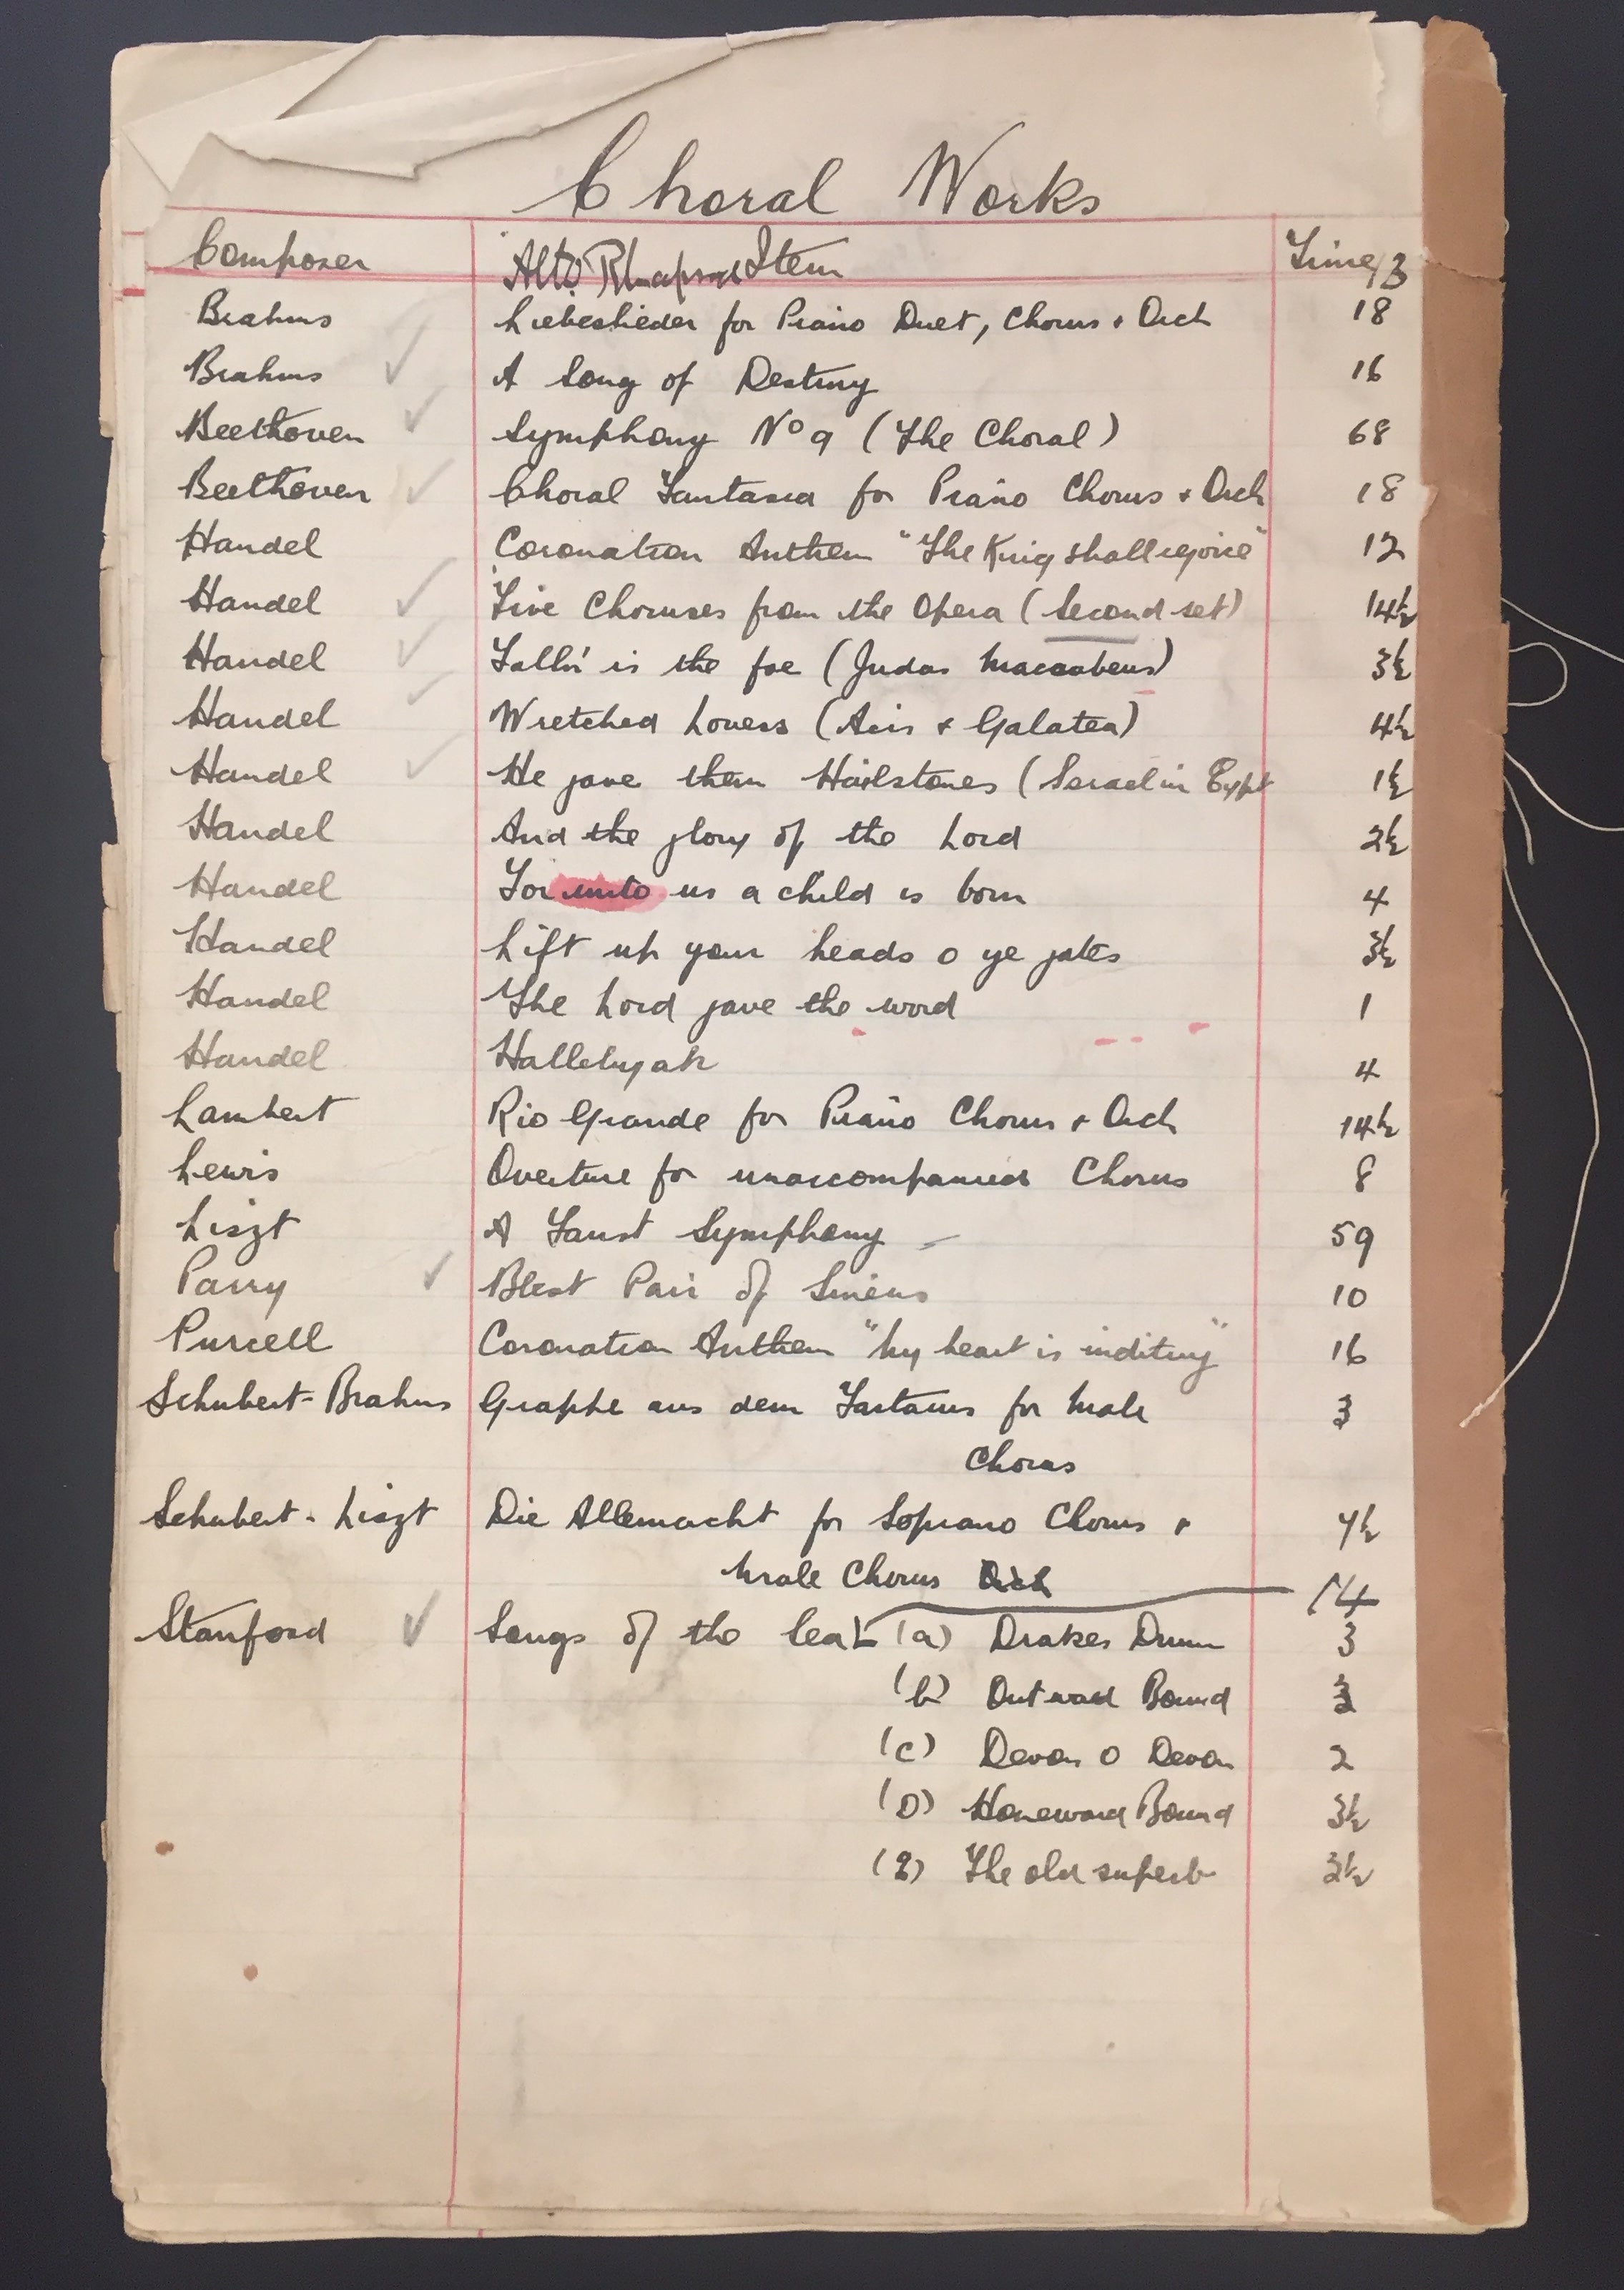 Choral Works
Composer Alto Rhapsod Item Time 13
Brahms Liebeslieder for Piano Duet, Chorus + Orch 18
Brahms ✓ A Song of Destiny 16
Beethoven ✓ Symphony No 9 (The Choral) 68
Beethoven ✓ Choral Fantasia for Piano Chorus + Orch 18
Handel Coronation Anthem "The King shall rejoice" 12
Handel ✓ Five Choruses from the Opera (Second set) 14½
Handel ✓ Falln' is the foe (Judas Maccabeus) 3½
Handel ✓ Wretched Lovers (Acis + Galatea) 4½
Handel ✓ He gave them Hailstones (Israel in Eypt 1½
Handel And the glory of the Lord 2½
Handel For unto us a child is born 4
Handel Lift up your heads o ye gates 3½
Handel The Lord gave the word 1
Handel Hallelujah 4
Lambert Rio Grande for Piano Chorus + Orch 14½
Lewis Overture for unaccompanied Chorus 8
Liszt A Faust Symphony 59
Parry ✓ Blest Pair of Sirens 10
Purcell Coronation Anthem "My heart is inditing" 16
Schubert-Brahms Graphe aus dem Tartarus for Male 3
Chorus
Schubert-Liszt Die Allemacht for Soprano Chorus + 4½
Male Chorus Orch
14
Stanford ✓ Songs of the Sea (a) Drakes Drum 3
(b) Outward Bound 3
(c) Devon O Devon 2
(D) Homeward Bound 3½
(E) The old superb 2½